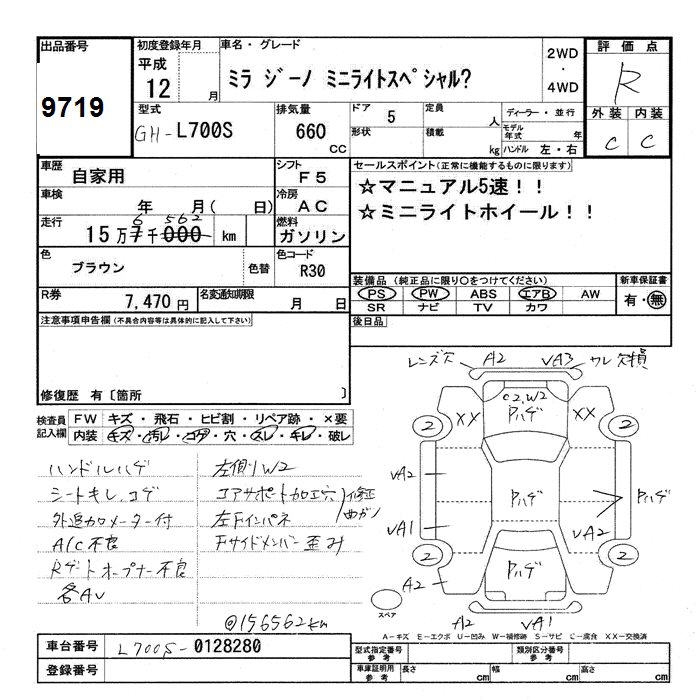 出品番号
9719
初度登録年月
平成
12 月
車名・グレード
ミラ ジーノ ミニライトスペシャル?
2WD
・
4WD
評価点
R
外装 内装
C C
型式
GH-L700S
排気量
660 CC
ドア
5
定員
人
形状
積載
kg
ディーラー・並行
モデル年式 年
ハンドル 左・右
車歴
自家用
シフト
F5
車検
年 月( 日)
冷房
AC
走行
15万7千000 km
6 562
燃料
ガソリン
色
ブラウン
色替
色コード
R30
R券
7,470円
名変通知期限
月 日
セールスポイント(正常に機能するものに限ります)
☆マニュアル5速!!
☆ミニライトホイール!!
装備品(純正品に限り○をつけてください)
PS PW ABS エアB AW
SR ナビ TV カワ
新車保証書
有・無
後日品
注意事項申告欄(不具合内容等は具体的に記入して下さい)
修復歴 有〔箇所 〕
検査員記入欄
FW キズ・飛石・ヒビ割・リペア跡・×要
内装 キズ・汚レ・コゲ・穴・スレ・キレ・破レ
ハンドルハゲ
シートキレ、コゲ
外追加メーター付
A/C不良
Rゲートオープナー不良
各AU
左側W2
コアサポート加工穴
修正
曲ガリ
左Fインパネ
Fサイドメンバー歪み
@156562km
レンズ欠 A2 VA3 ワレ欠損
C2,W2
Pハゲ
XX XX
2 2
VA2
Pハゲ
Pハゲ
VA1
VA2
2 2
Pハゲ
A2
スペア
A2 VA1
A-キズ E-エクボ U-凹み W-補修跡 S-サビ C-腐食 XX-交換済
車台番号
L700S-0128280
登録番号
型式指定番号
参考
類別区分番号
参考
車庫証明用
参考
長さ cm 幅 cm 高さ cm